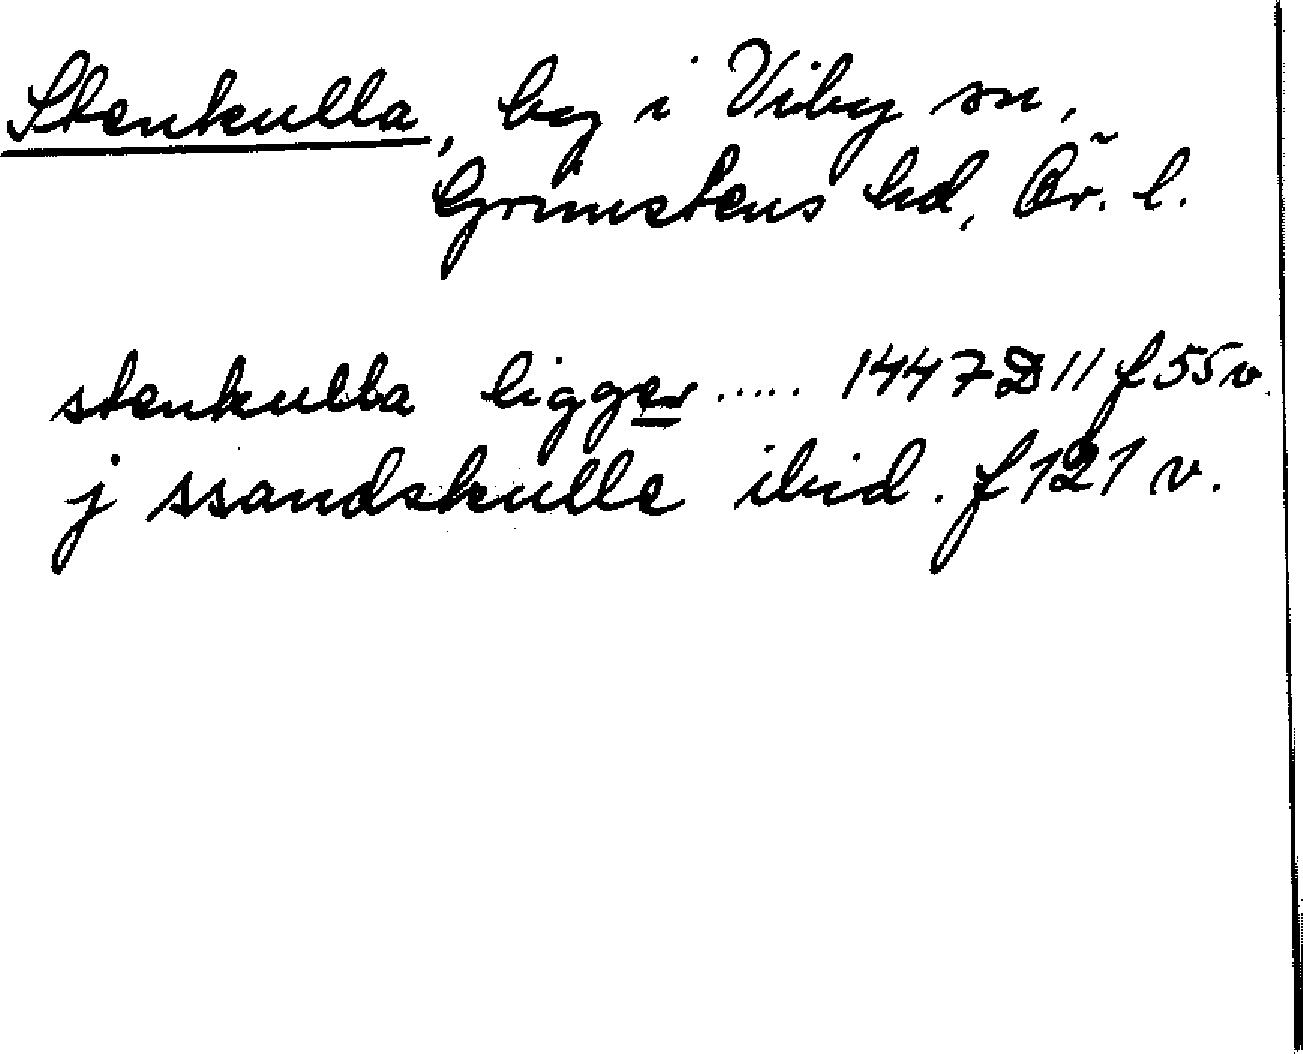 Stenkulla, by i Viby sn,
Grimstens hd, Ör. l.
stenkulla ligger ..... 1447 D 11 f 55 v.
j ssandskulle ibid. f 121 v.